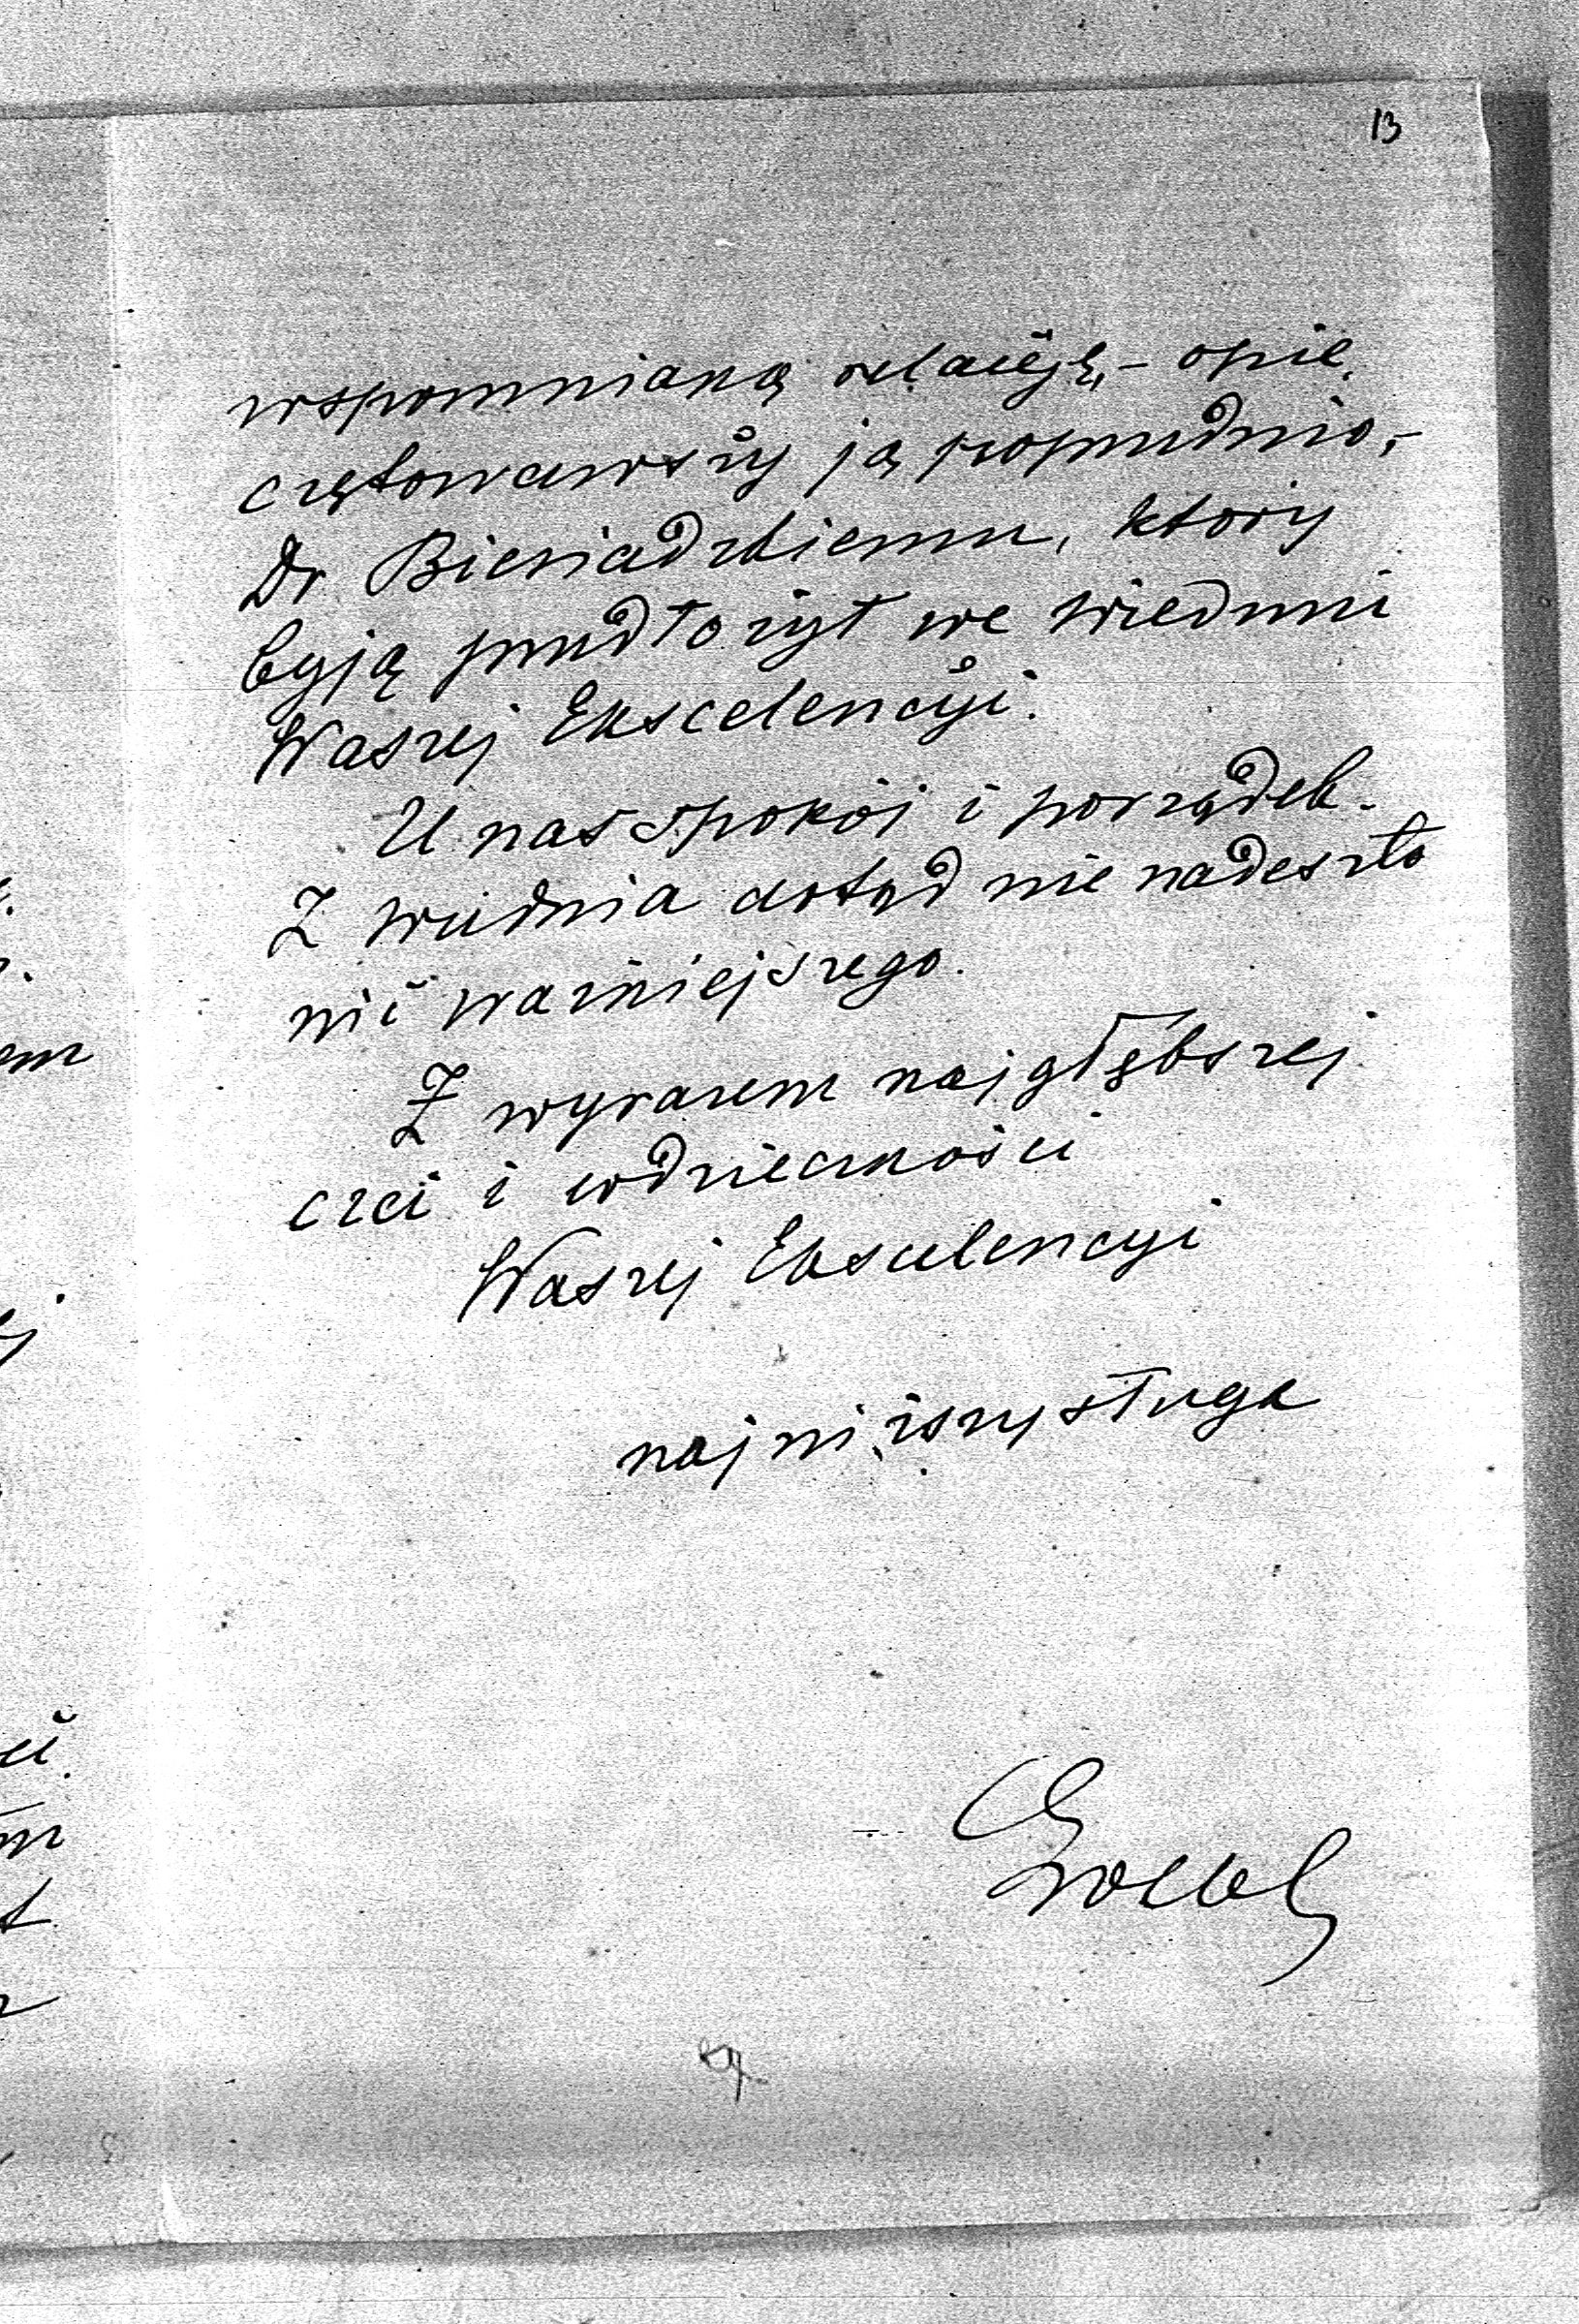 13
wspomnianą relacyję, – opie
czętowawszy ją poprzednio, –
Dr Biesiadzkiemu, który
by ją przedłożył we Wiedniu
Waszej Ekscelencyi.
U nas spokój i porządek.
Z Wiednia dotąd nie nadeszło
nic ważniejszego.
Z wyrazem najgłębszej
czci i wdzięczności
Waszej Ekscelencyi
najniższy sługa